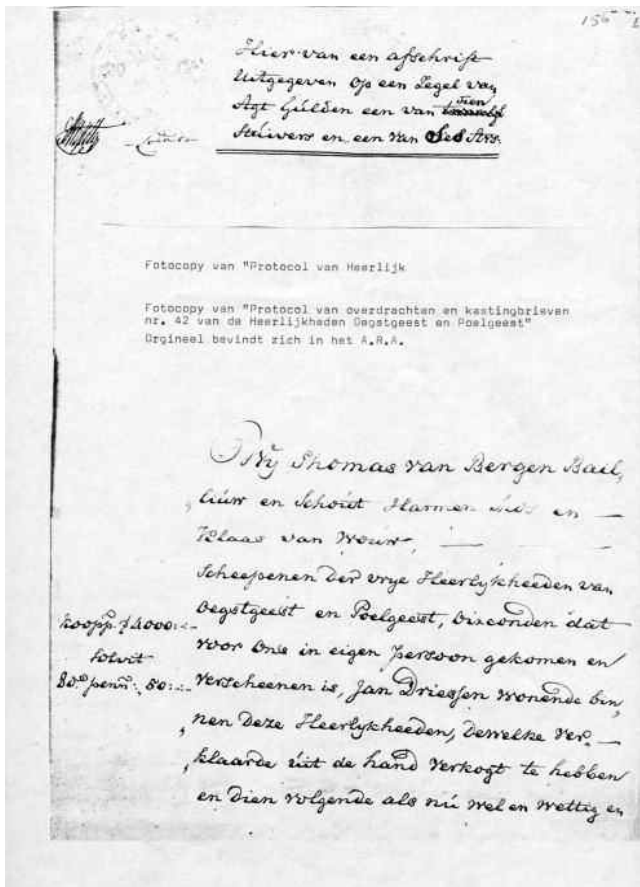 156
Hier van een afschrift
Uitgegeven op een Zegel van
Agt Gulden een van tien
Stuivers en een van Ses Strs.
Fotocopy van "Protocol van Heerlijk
Fotocopy van "Protocol van overdrachten en kastingbrieven
nr. 42 van de Heerlijkheden Oegstgeest en Poelgeest"
Orgineel bevindt zich in het A.R.A.
Wij Thomas van Bergen Bail,
liuw en Schout Harmen en
Klaas van Wouw,
Scheepenen der vrye Heerlykheeden van
Oegstgeest en Poelgeest, Oirconden dat
voor Ons in eigen persoon gekomen en
verscheenen is, Jan Driessen wonende bin,
nen deze Heerlykheeden, dewelke ver,
klaarde uit de hand verkogt te hebben
en dien volgende als nu wel en wettig en
Koopp. ƒ4000:-:-
solvit
80e. penn: 50:-:-